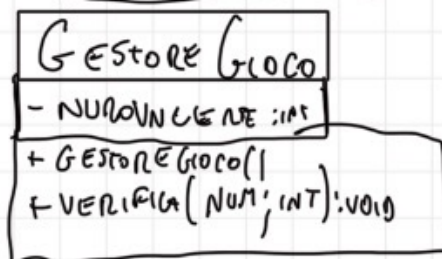 GESTORE GIOCO
- NUMOVINCENTE :INT
+ GESTOREGIOCO()
+ VERIFICA(NUM; INT):VOID